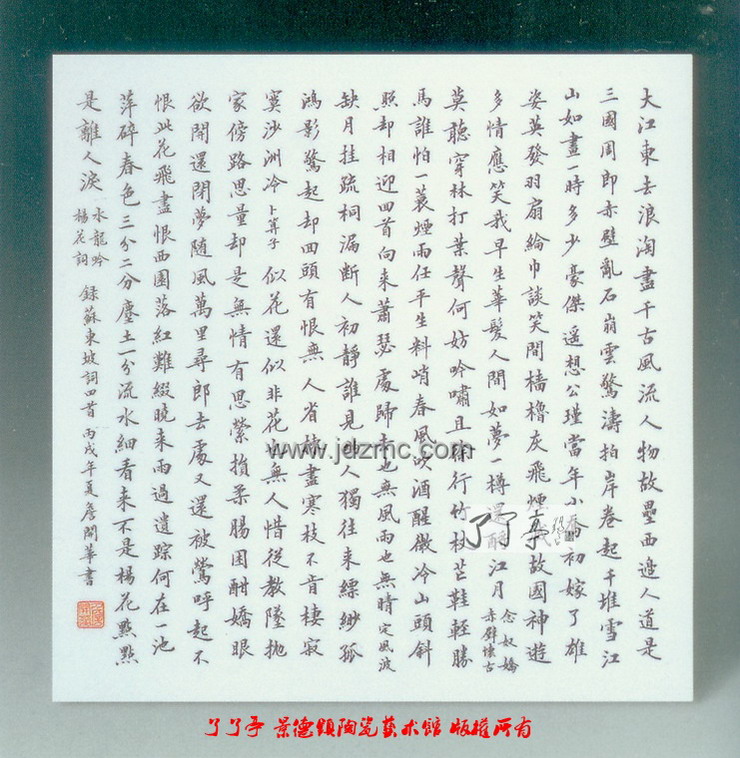 大江東去浪淘盡千古風流人物故壘西邊人道是
三國周郎赤壁亂石崩雲驚濤拍岸卷起千堆雪江
山如畫一時多少豪傑遥想公瑾當年小喬初嫁了雄
姿英發羽扇綸巾談笑間檣櫓灰飛煙滅故國神遊
多情應笑我早生華髮人間如夢一樽還酹江月 念奴嬌 赤壁懷古
莫聽穿林打葉聲何妨吟嘯且徐行竹杖芒鞋輕勝
馬誰怕一蓑煙雨任平生料峭春風吹酒醒微冷山頭斜
照却相迎回首向來蕭瑟處歸去也無風雨也無晴 定風波
缺月挂疏桐漏斷人初靜誰見幽人獨往來縹緲孤
鴻影驚起却回頭有恨無人省揀盡寒枝不肯棲寂
寞沙洲冷 卜算子 似花還似非花也無人惜從教墜抛
家傍路思量却是無情有思縈損柔腸困酣嬌眼
欲開還閉夢隨風萬里尋郎去處又還被鶯呼起不
恨此花飛盡恨西園落紅難綴曉來雨過遺踪何在一池
萍碎春色三分二分塵土一分流水細看來不是楊花點點
是離人淚 水龍吟 楊花詞 録蘇東坡詞四首 丙戌年夏詹開華書
www.jdzmc.com
了了亭
了了亭 景德鎮陶瓷藝术館 版權所有